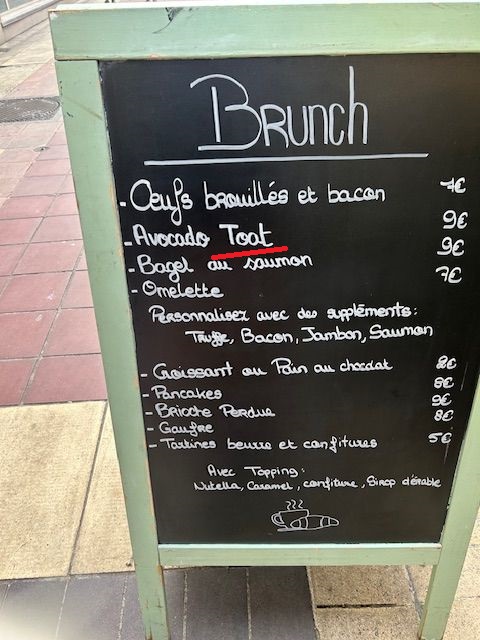 BRUNCH
- Œufs brouillés et bacon 7€
- Avocado Toat 9€
- Bagel au saumon 9€
- Omelette 7€
Personnalisez avec des suppléments:
Truffe, Bacon, Jambon, Saumon
- Croissant ou Pain au chocolat 2€
- Pancakes 8€
- Brioche Perdue 9€
- Gaufre 8€
- Tartines beurre et confitures 5€
Avec Topping:
Nutella, Caramel, confiture, Sirop d'érable